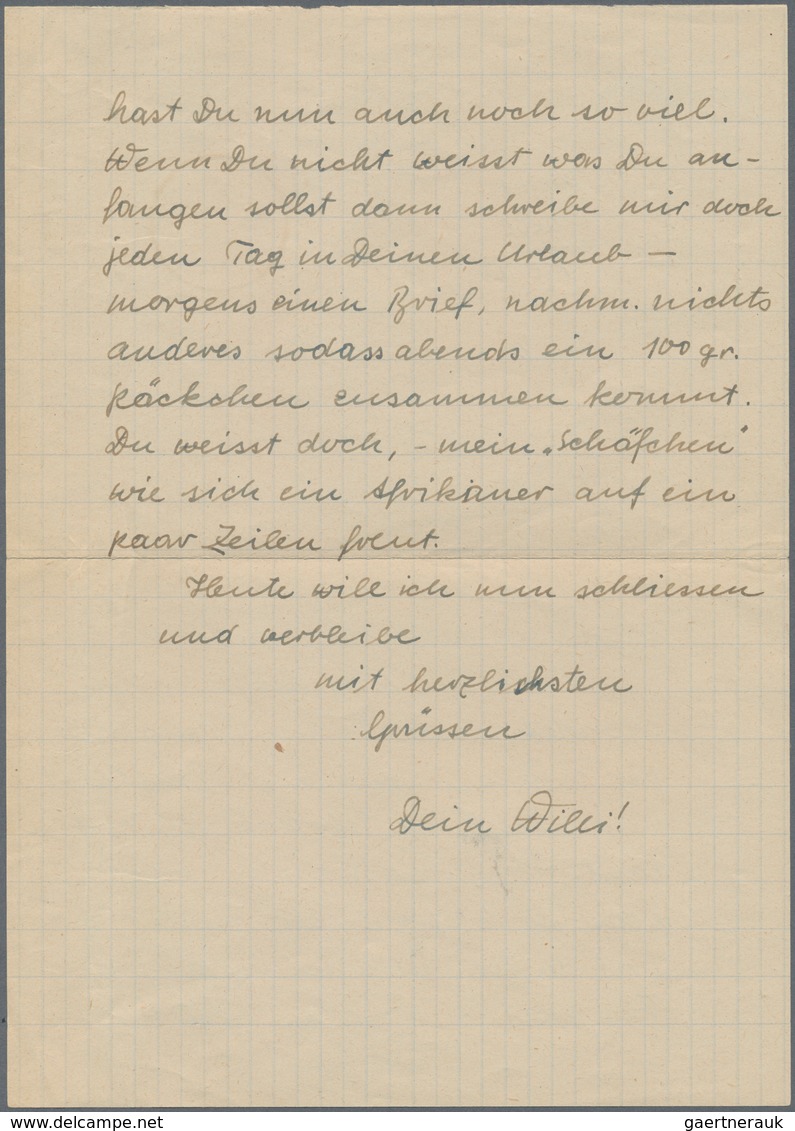 hast Du nun auch noch so viel.
Wenn Du nicht weisst was Du an-
fangen sollst dann schreibe mir doch
jeden Tag in Deinen Urlaub —
morgens einen Brief, nachm. nichts
anderes sodass abends ein 100 gr.
Päckchen zusammen kommt.
Du weisst doch, - mein „Schäfchen"
wie sich ein Afrikaner auf ein
paar Zeilen freut.
Heute will ich nun schliessen
und verbleibe
mit herzlichsten
Grüssen
Dein Willi!
www.delcampe.net
gaertnerauk